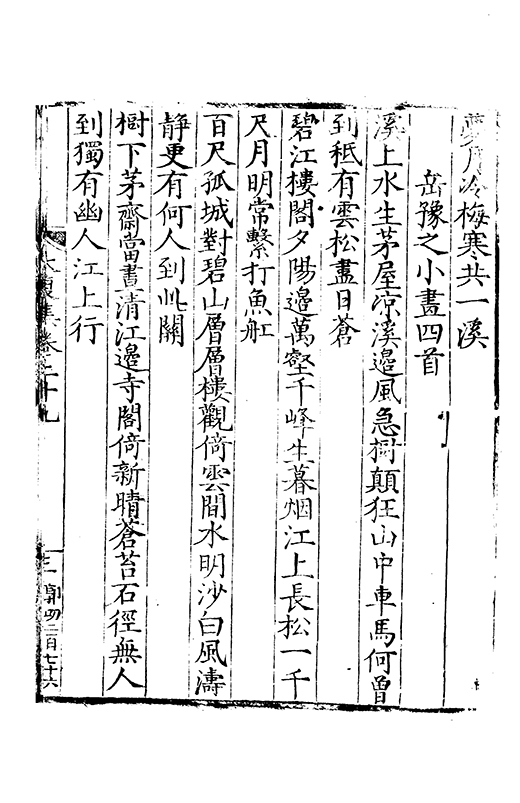 夢月冷梅寒共一溪
岳豫之小畫四首
溪上水生茅屋凉溪邉風急樹顛狂山中車馬何曾
到秪有雲松盡日蒼
碧江樓閣夕陽邉萬壑千峰生暮烟江上長松一千
尺月明常繫打魚舡
百尺孤城對碧山層層樓觀倚雲間水明沙白風濤
静更有何人到此關
樹下茅齋當畫清江邉寺閣倚新晴蒼苔石徑無人
到獨有幽人江上行
大復集卷二十九
三